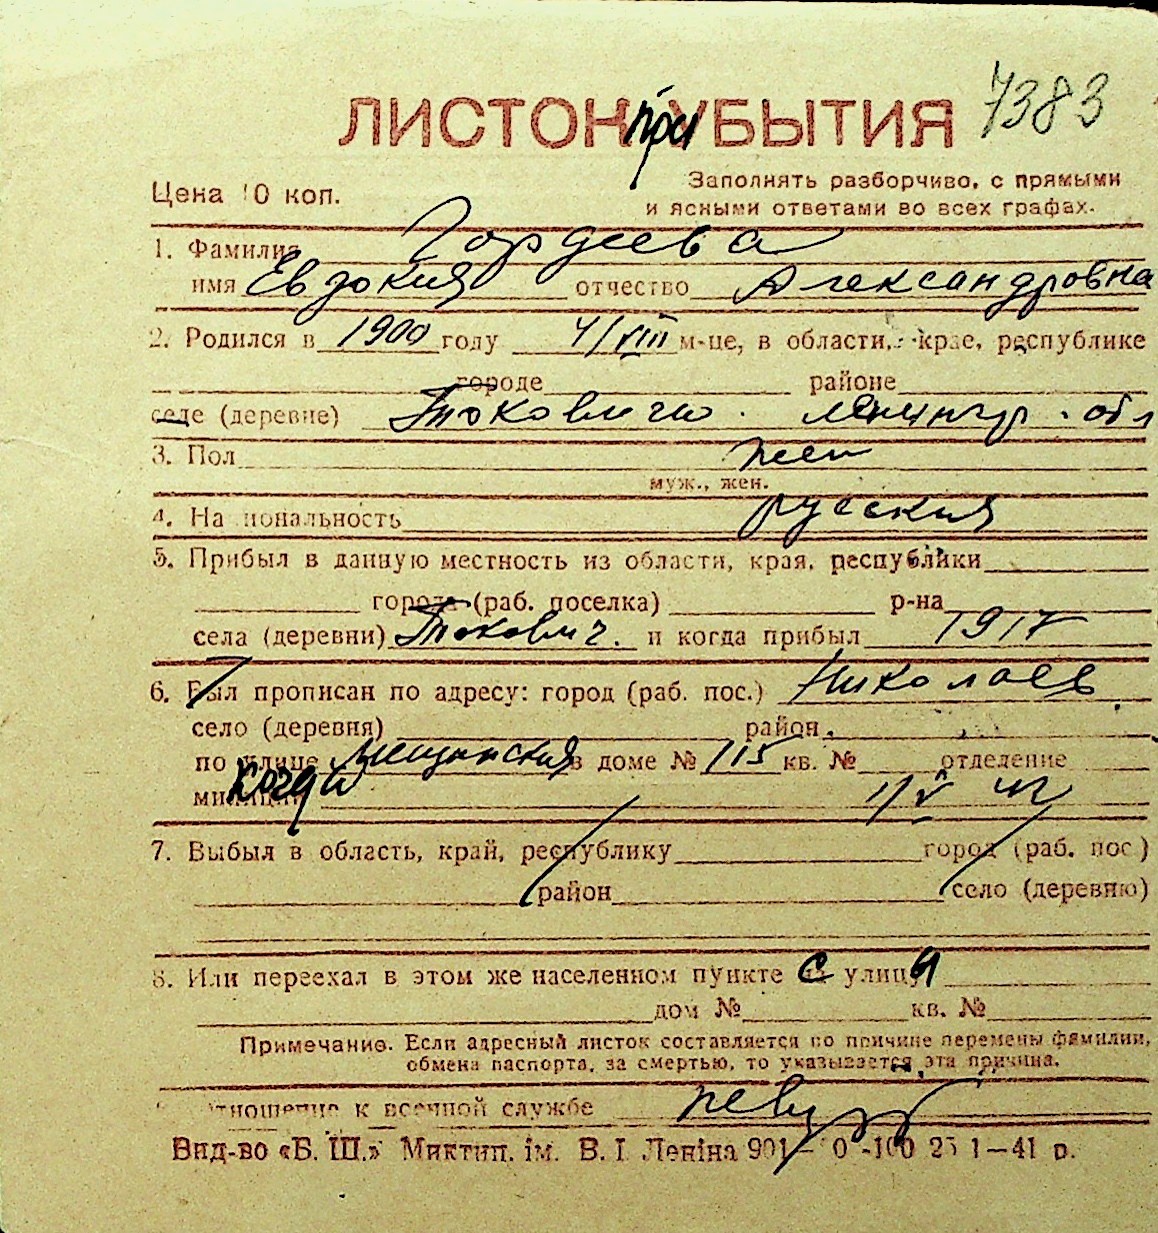 ЛИСТОК при УБЫТИЯ 7383
Цена 10 коп.
Заполнять разборчиво, с прямыми
и ясными ответами во всех графах.
1. Фамилия Гордеева
имя Евдокия отчество Александровна
2. Родился в 1900 году 4/VIII м-це, в области, крае, республике
городе районе
селе (деревне) Токовичи. Ленингр. обл
3. Пол жен
муж., жен.
4. Национальность русская
5. Прибыл в данную местность из области, края, республики
города (раб. поселка) р-на
села (деревни) Токович. и когда прибыл 1917
6. Был прописан по адресу: город (раб. пос.) Николаев
село (деревня) район
по улице Мещанская в доме № 115 кв. № отделение
милиции когда 1/V 42
7. Выбыл в область, край, республику город (раб. пос.)
район село (деревню)
8. Или переехал в этом же населенном пункте с улицы
дом № кв. №
Примечание. Если адресный листок составляется по причине перемены фамилии,
обмена паспорта, за смертью, то указывается эта причина.
отношение к военной службе
Вид-во «Б. Ш.» Миктип. ім. В. І. Леніна 901 1—41 р.